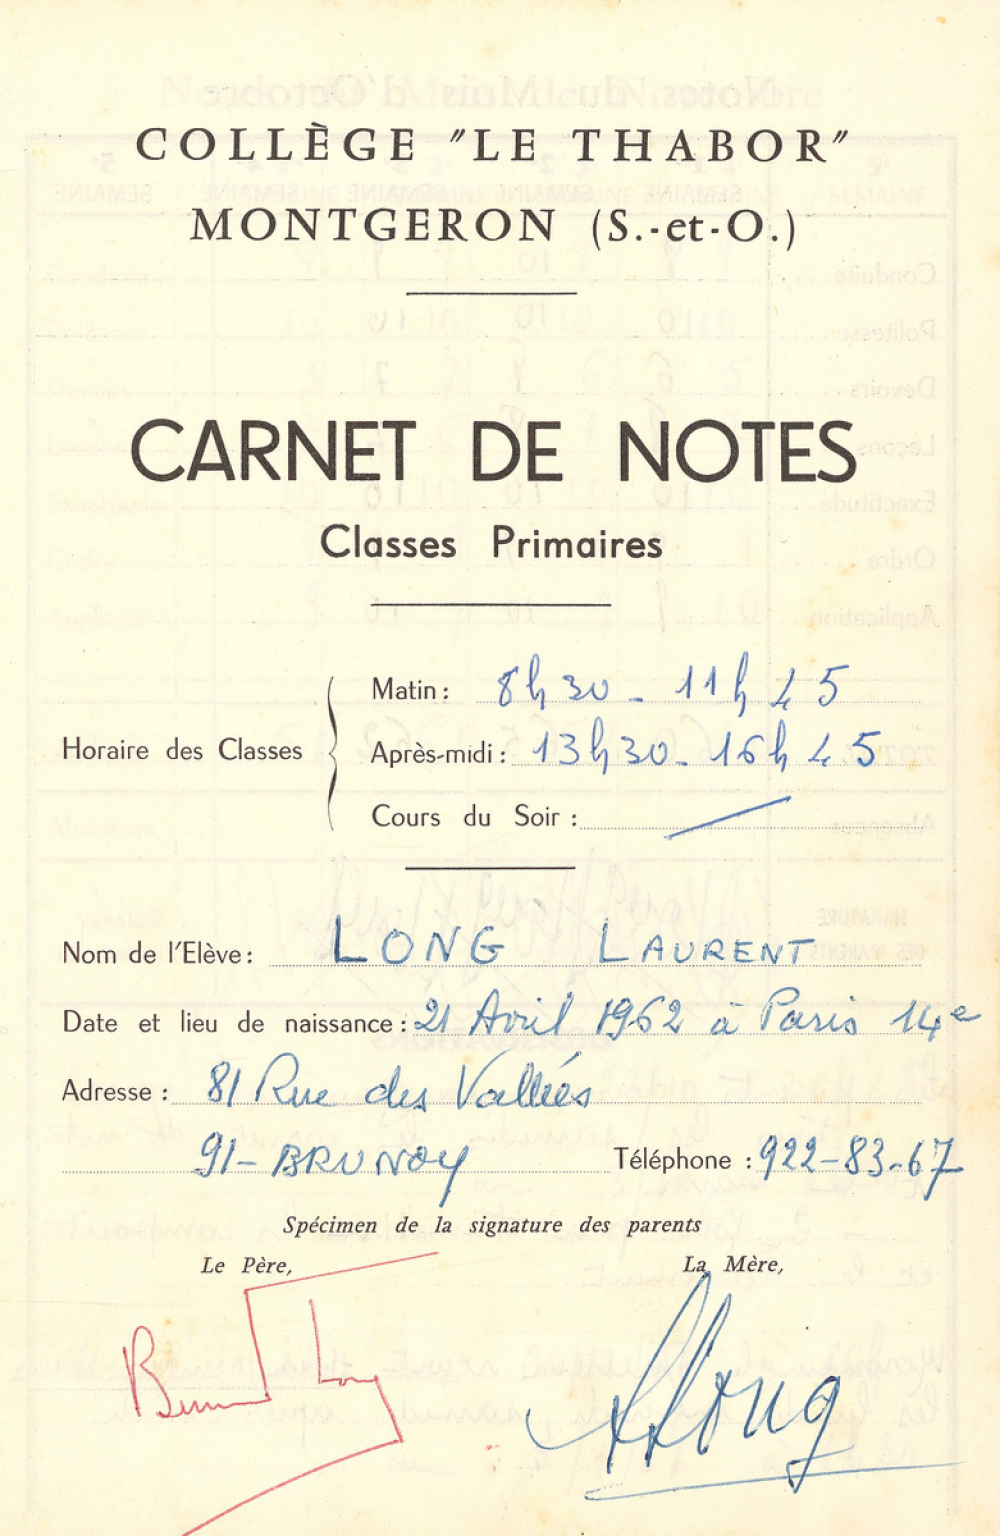 COLLÈGE "LE THABOR"
MONTGERON (S.-et-O.)
CARNET DE NOTES
Classes Primaires
Horaire des Classes
Matin : 8h30 - 11h45
Après-midi : 13h30 - 16h45
Cours du Soir :
Nom de l'Elève : LONG LAURENT
Date et lieu de naissance : 21 Avril 1962 à Paris 14e
Adresse : 81 Rue des Vallées
91 - BRUNOY Téléphone : 922-83-67
Spécimen de la signature des parents
Le Père, La Mère,
Long